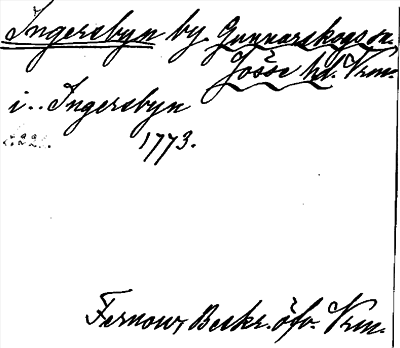 Ingersbyn by Gunnarskogs sn.
Jösse hd. Vrm.
i.. Ingersbyn
1773.
Fernow, Beskr. öfv. Vrm.